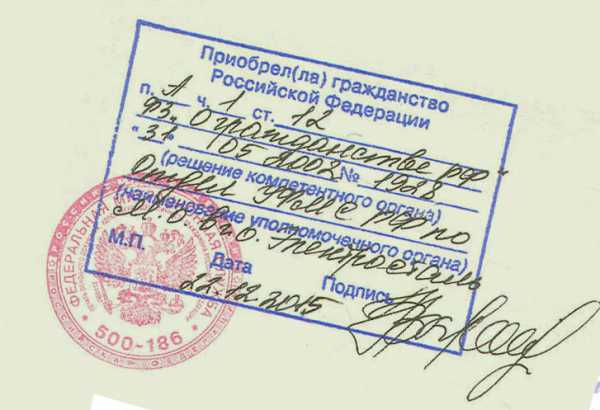 Приобрел(ла) гражданство
Российской Федерации
п. А ч. 1 ст. 12
ФЗ „О гражданстве РФ"
"31" 05 2002 № 1928
(решение компетентного органа)
УФМС РФ по
(наименование уполномоченного органа)
М.О. в г.о. Электросталь
М.П. Дата Подпись
22.12.2015
ФЕДЕРАЛЬНАЯ
500-186